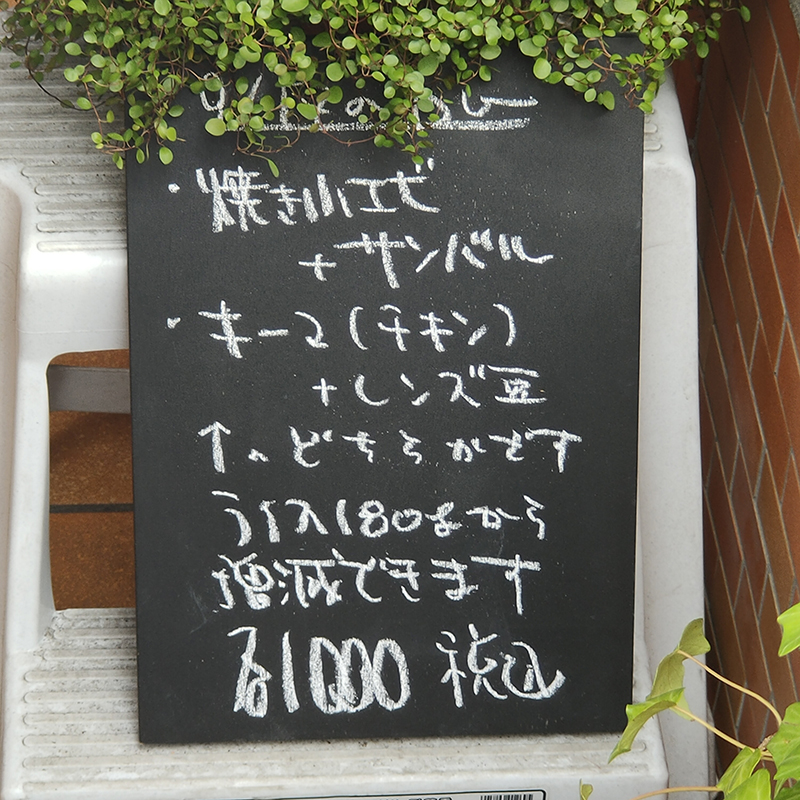 ・焼き小エビ
+サンバル
・キーマ(チキン)
+レンズ豆
↑のどちらかです
ライス180gから
増減できます
各1000 税込